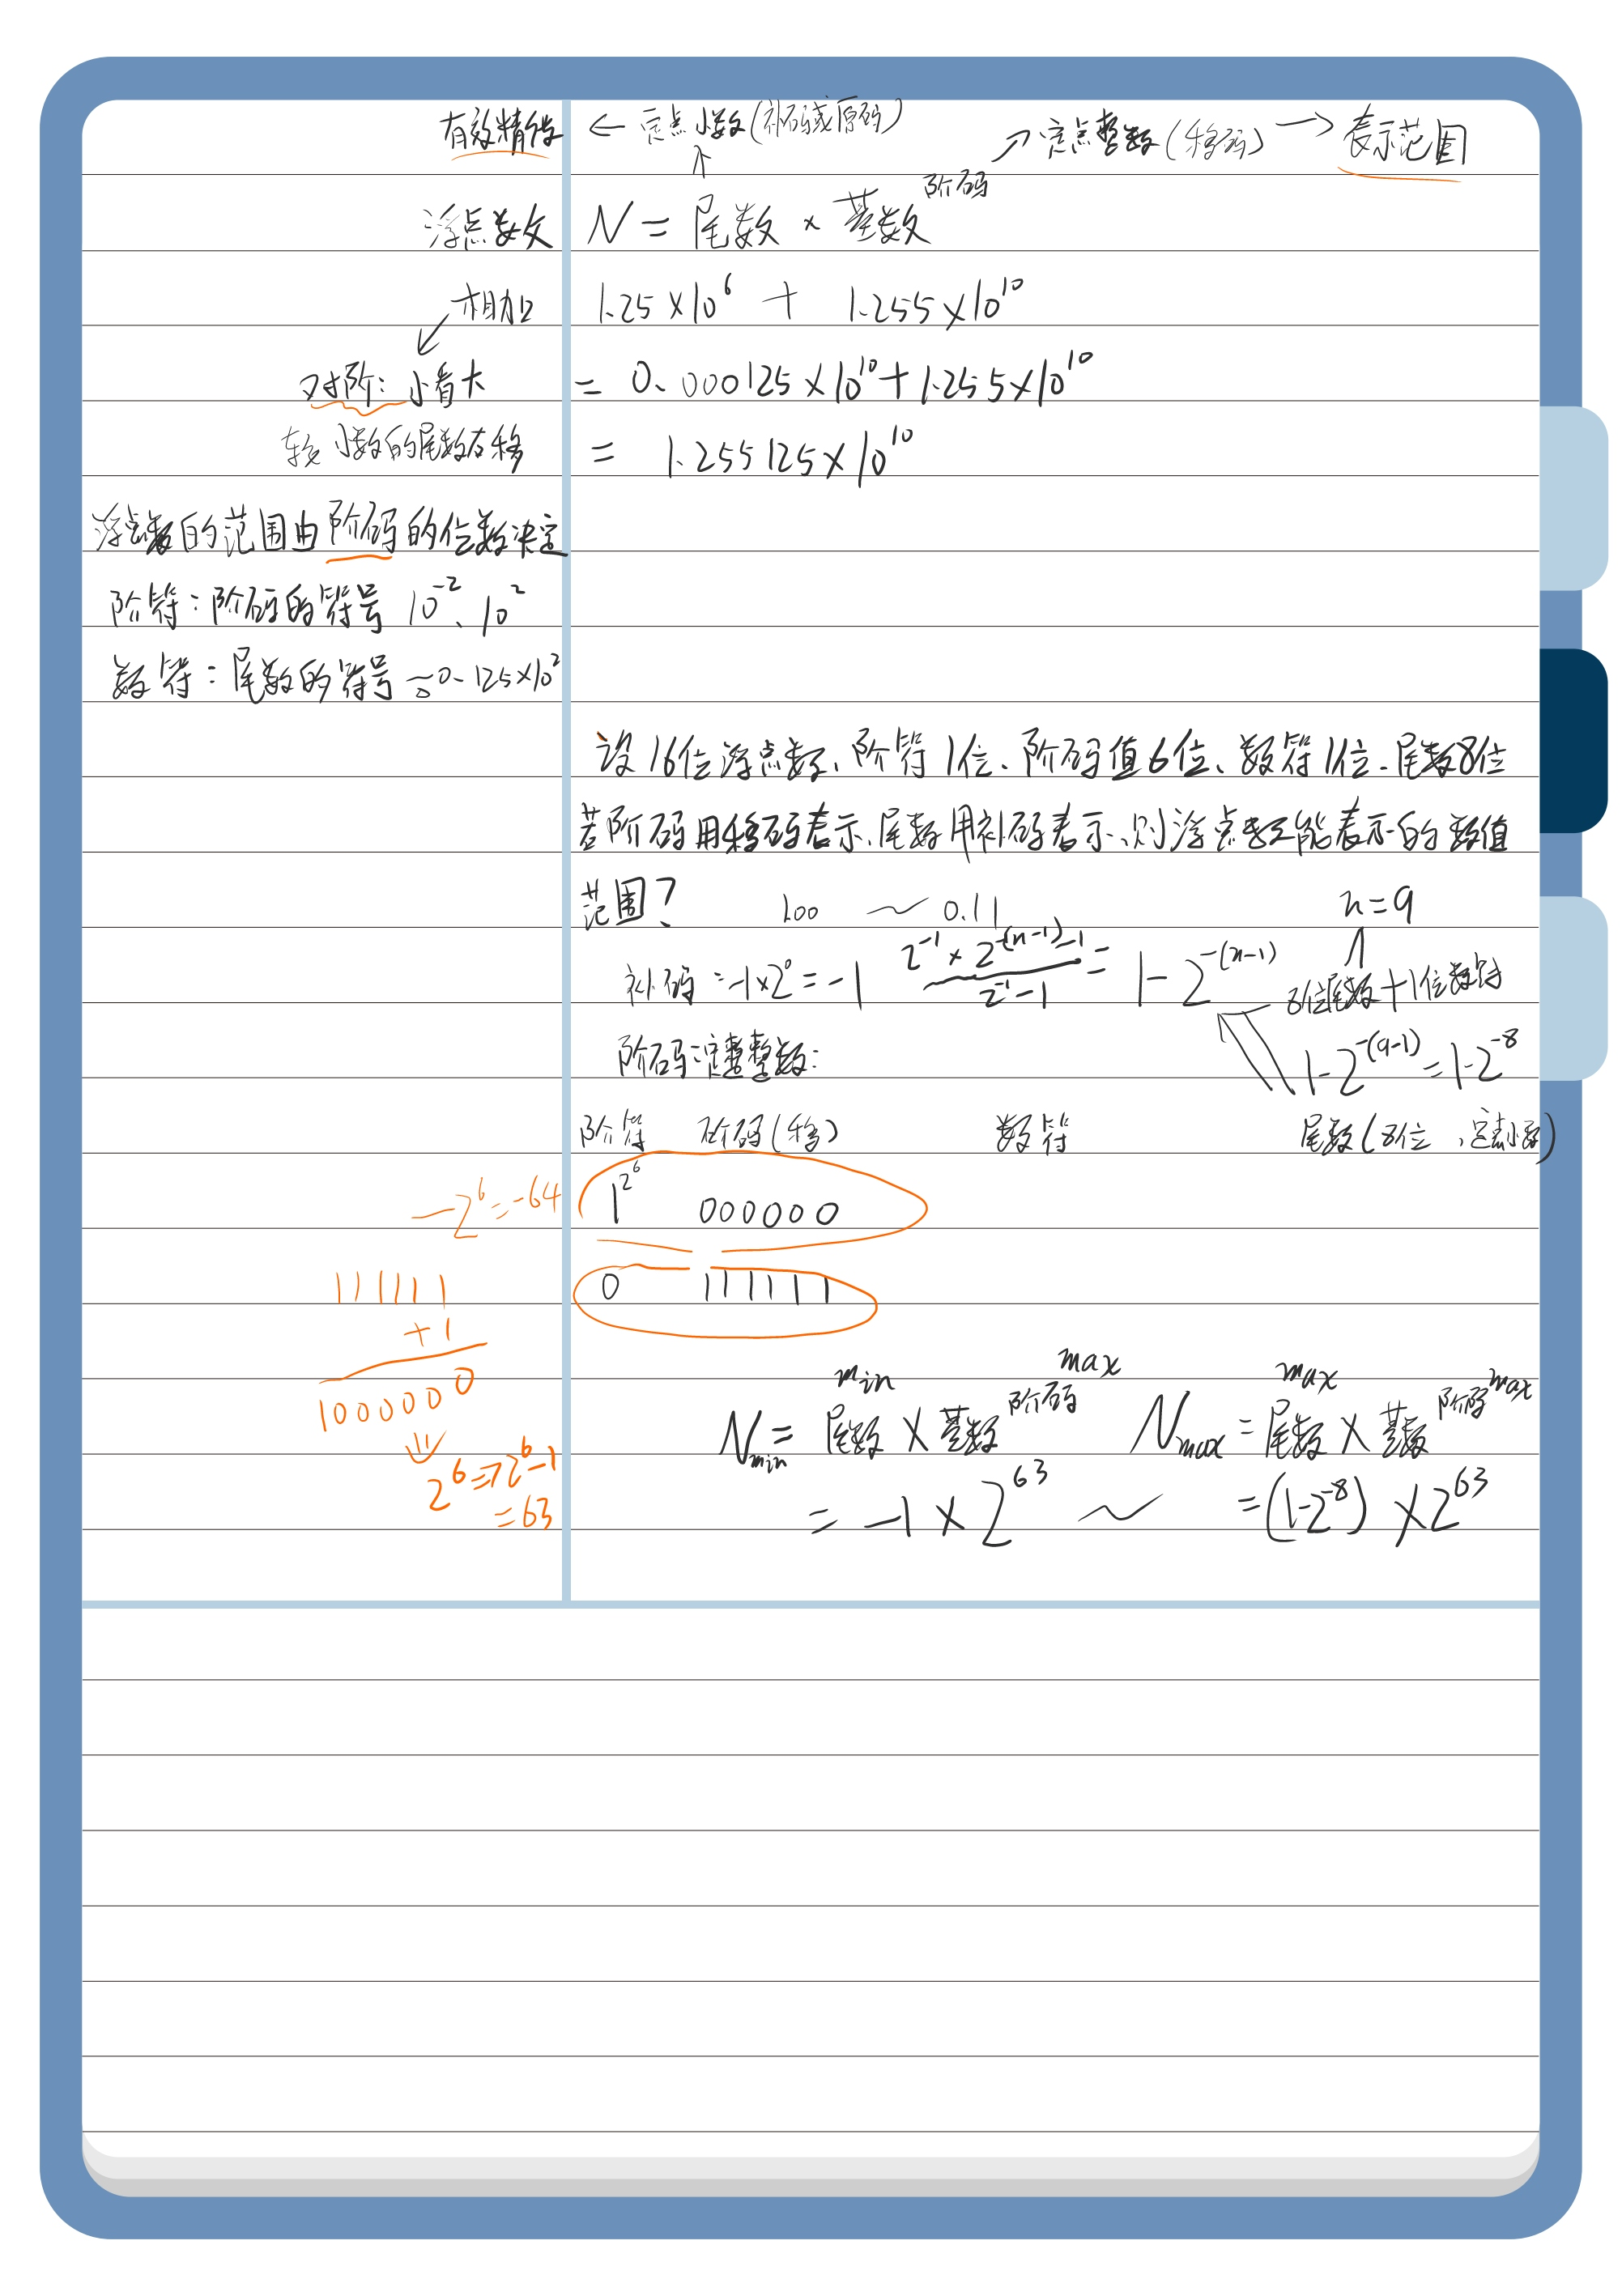 有效精度 ← 定点小数(补码或原码) ↗ 定点整数(移码) → 表示范围
浮点数 N = 尾数 × 基数^阶码
相加 1.25×10^6 + 1.255×10^10
对阶: 小看大 = 0.000125×10^10+1.255×10^10
较小数的尾数右移 = 1.255125×10^10
浮点数的范围由阶码的位数决定
阶符:阶码的符号 10^-2、10^2
数符:尾数的符号 0.125×10^2
设16位浮点数、阶符1位、阶码值6位、数符1位、尾数8位
若阶码用移码表示、尾数用补码表示、则浮点数能表示的数值
范围? 1.00 ~ 0.11 n=9
补码:-1×2^0=-1 2^-1×2^-(n-1)-1 / 2^-1-1 = 1-2^-(n-1) 8位尾数+1位数符
阶码:定整数: 1-2^-(9-1)=1-2^-8
阶符 阶码(移) 数符 尾数(8位、定点小数)
-2^6=-64 1^2^6 000000
111111 0 111111
+1
1000000
min max max max
N_min = 尾数×基数^阶码 N_max = 尾数×基数^阶码
2^6⇒2^6-1
=63
= -1×2^63 ~ =(1-2^-8)×2^63